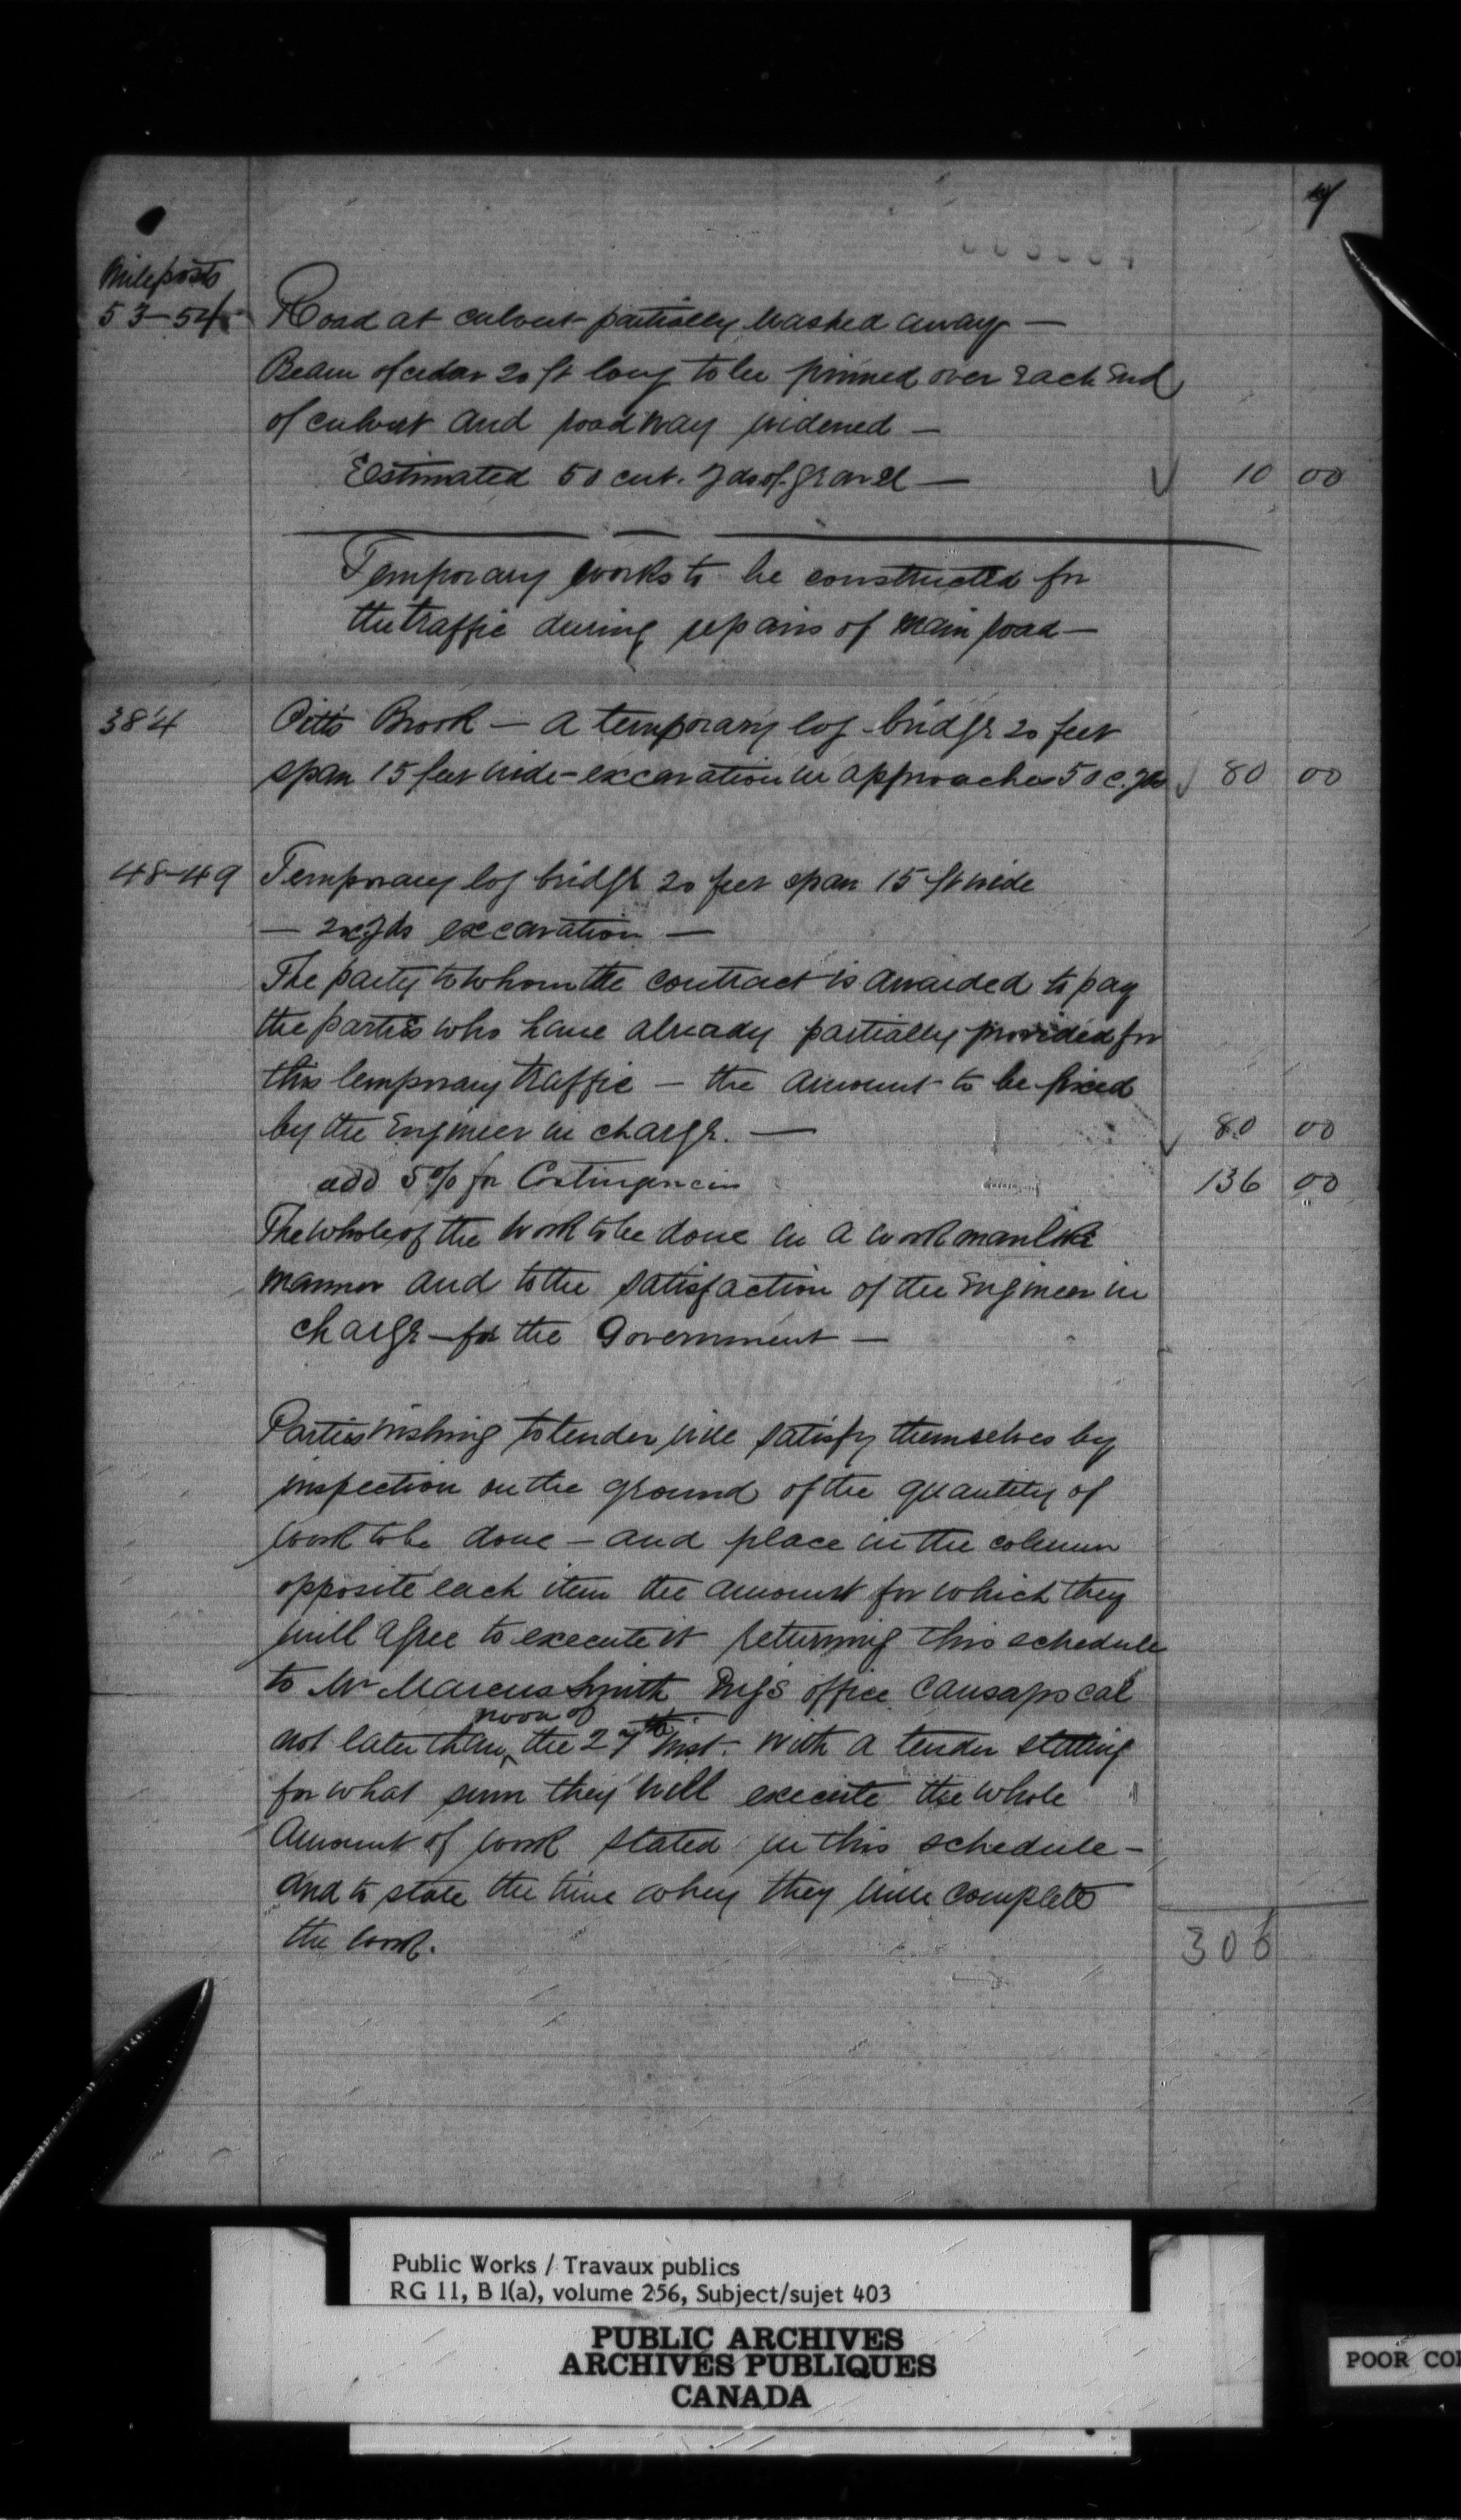 Mileposts
53-54 Road at culvert partially washed away —
Beam of cedar 20 ft long to be pinned over each end
of culvert and roadway widened —
Estimated 50 cub. yds of gravel — 10 00
Temporary works to be constructed for
the traffic during repairs of main road —
38¼ Pitts Brook — a temporary log bridge 20 feet
span 15 feet wide - excavation in approaches 50 c. yds 80 00
48-49 Temporary log bridge 20 feet span 15 ft wide
— yds excavation —
The party to whom the contract is awarded to pay
the parties who have already partially provided for
this temporary traffic — the amount to be fixed
by the Engineer in charge. — 80 00
add 5% for Contingencies 136 00
The whole of the work to be done in a workmanlike
manner and to the satisfaction of the Engineer in
charge — for the Government —
Parties wishing to tender will satisfy themselves by
inspection on the ground of the quantity of
work to be done — and place in the column
opposite each item the amount for which they
will agree to execute it returning this schedule
to Mr Marcus Smith Eng's office Causapscal
noon of
not later than the 27th inst. with a tender stating
for what sum they will execute the whole
amount of work stated in this schedule —
and to state the time when they will complete
the work.
306
Public Works / Travaux publics
RG 11, B 1(a), volume 256, Subject/sujet 403
PUBLIC ARCHIVES
ARCHIVES PUBLIQUES
CANADA
POOR CO